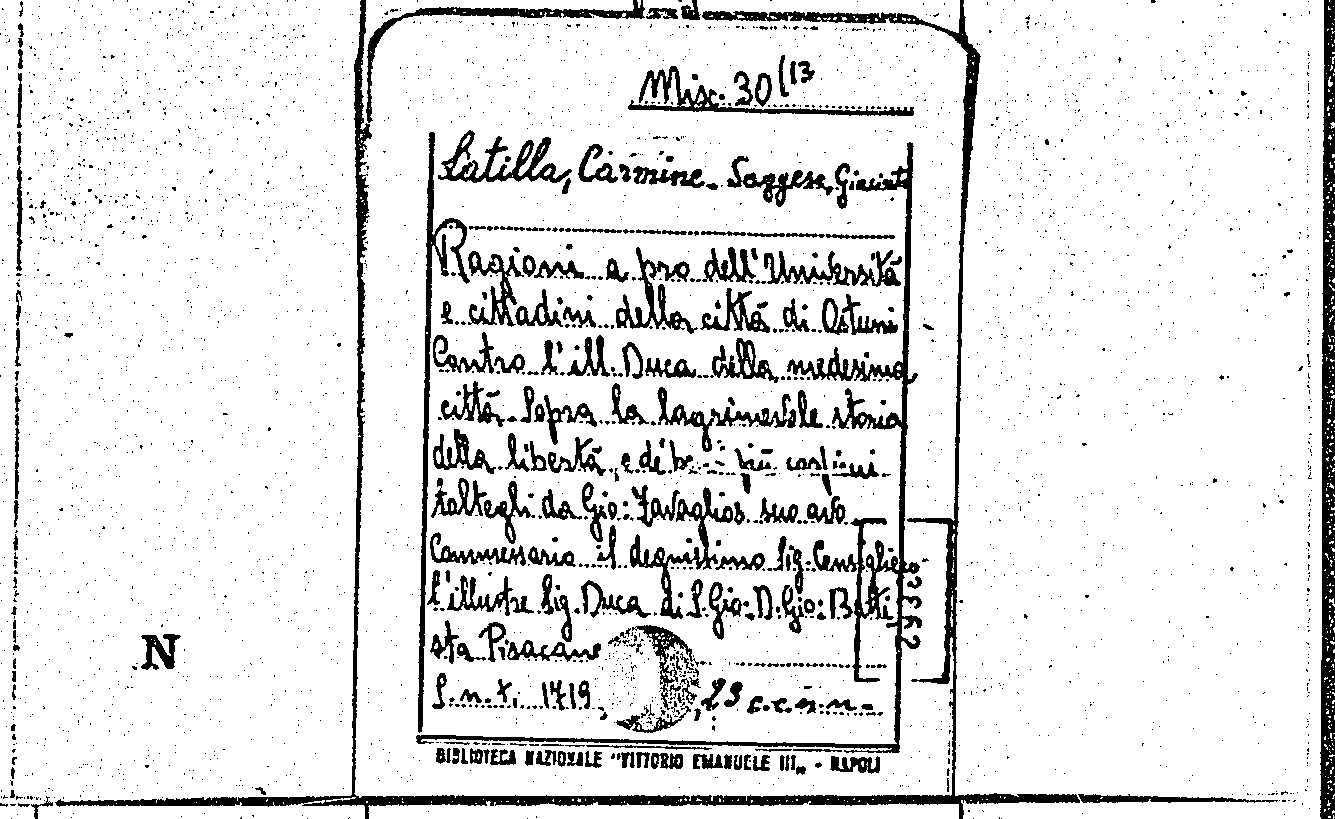 Misc. 30(13
Latilla, Carmine. Saggese, Giacinto
Ragioni a pro dell'Università
e cittadini della città di Ostuni
Contro l'ill. Duca della medesima
città. Sopra la lagrimevole storia
della libertà, e di più
toltegli da Gio: Zavaglios suo avo
Commessario il degnissimo Sig. Consigliero
l'illustre Sig. Duca di S. Gio: D. Gio: Batti
sta Pisacane
S. n. t. 1719, 23 c.c.n.n.
BIBLIOTECA NAZIONALE "VITTORIO EMANUELE III„ - NAPOLI
N